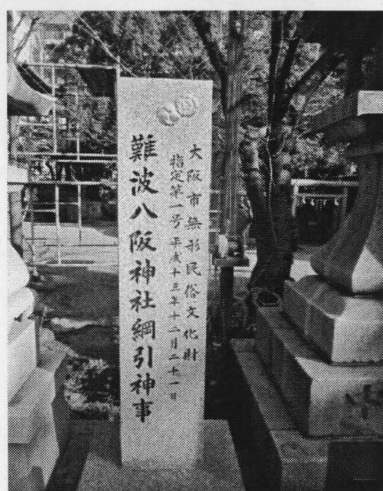 大阪市無形民俗文化財
指定第一号 平成十三年十二月二十一日
難波八阪神社綱引神事